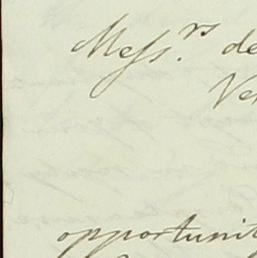 Mess.rs de
Ve
opportunit